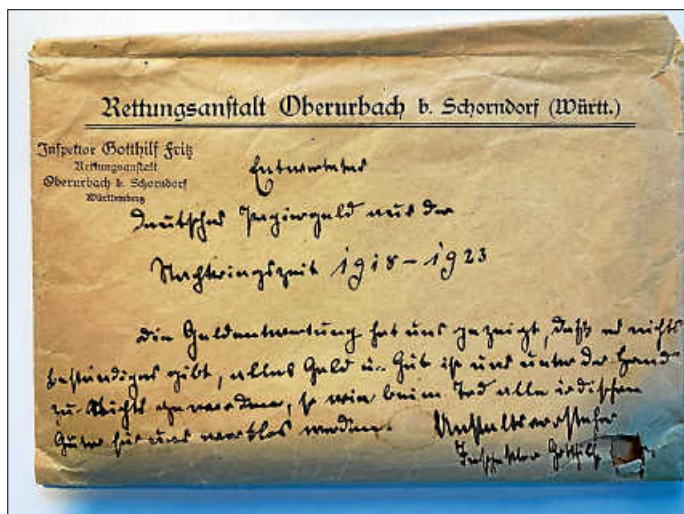 Rettungsanstalt Oberurbach b. Schorndorf (Württ.)
Inspektor Gotthilf Fritz
Rettungsanstalt
Oberurbach b. Schorndorf
Württemberg
Entwertetes
deutsches Papiergeld aus der
Nachkriegszeit 1918 – 1923
Die Geldentwertung hat uns gezeigt, daß es nichts
beständiges gibt, alles Geld u. Gut ist uns unter der Hand
zu Nichts geworden, so wie beim Tod alle irdischen
Güter für uns wertlos werden. Anstaltsvorsteher
Inspektor Gotthilf